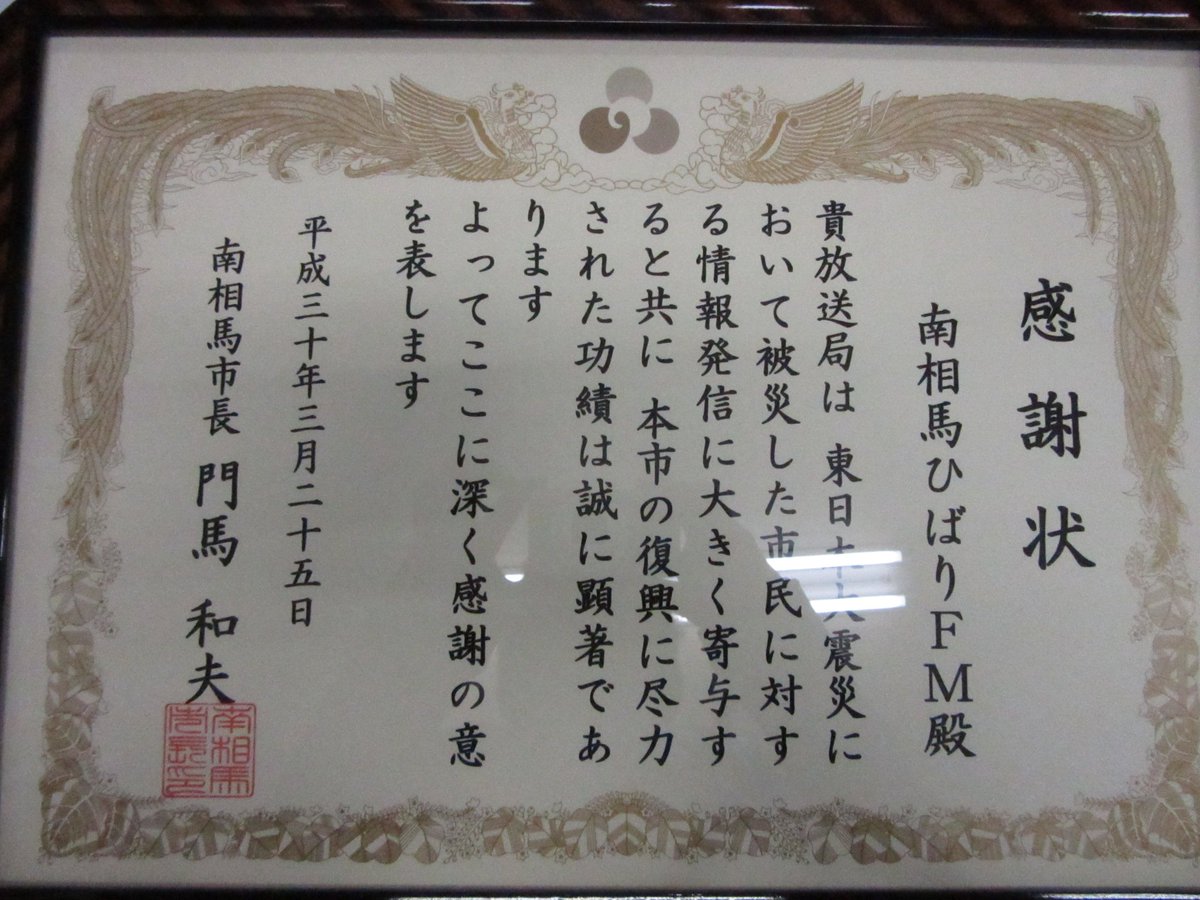 感謝状
南相馬ひばりFM殿
貴放送局は 東日本大震災に
おいて被災した市民に対す
る情報発信に大きく寄与す
ると共に 本市の復興に尽力
された功績は誠に顕著であ
ります
よってここに深く感謝の意
を表します
平成三十年三月二十五日
南相馬市長 門馬 和夫
南相馬
市長之印